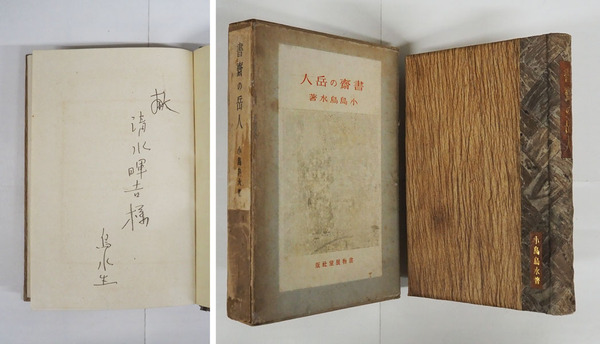 献
清水暉吉様
烏水生
書齋の岳人
小島烏水著
書齋の岳人
小島烏水著
書物展望社版
小島烏水著